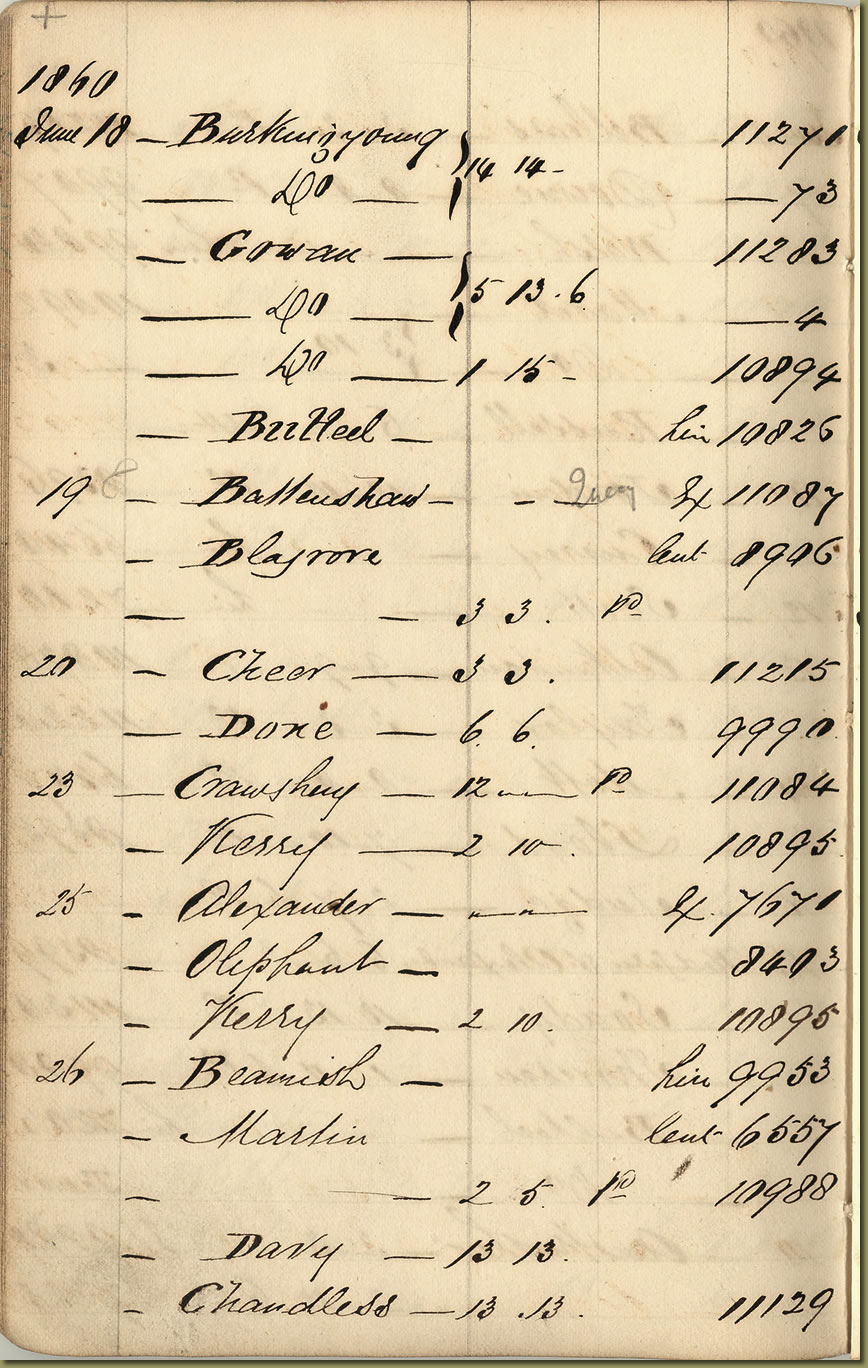 +
1860
June 18 — Burkinyoung } 14 14 - 11271
— Do — — 73
— Gowan — } 5 13 . 6 11283
— Do — — 4
— Do — 1 15 - 10894
— Bulteel — hire 10826
19 — Battenshaw - - Query Ex 11087
— Blagrove lent 8906
— — 3 3 . Pd
20 — Cheer — 3 3 . 11215
— Done — 6. 6. 9990
23 — Crawshay — 12 „ — Pd 11084
— Kerry — 2 10 . 10895
25 — Alexander — „ „ — Ex. 7671
— Oliphant — 8403
— Kerry — 2 10. 10895
26 — Beamish — hire 9953
— Martin lent 6557
— — 2 5. Pd 10988
— Davy — 13 13.
— Chandless — 13 .13. 11129